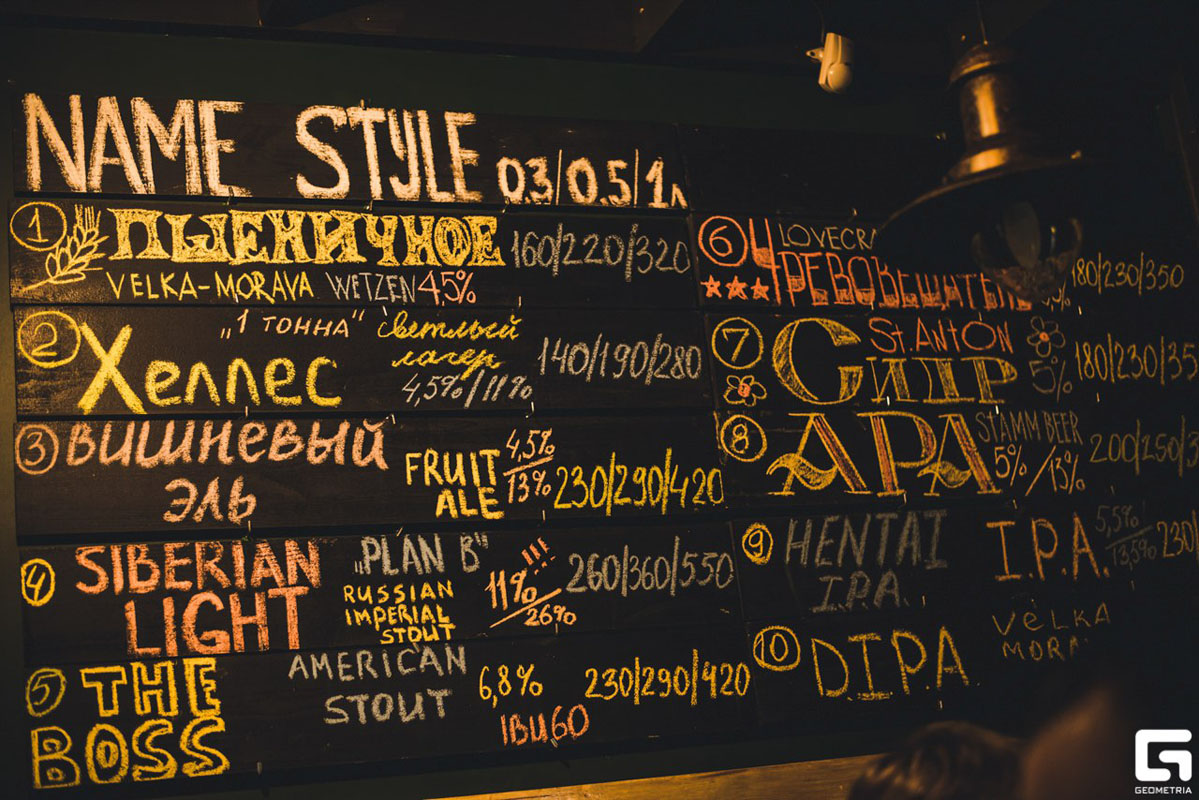 NAME STYLE 0.3/0.5/1л
1 ПШЕНИЧНОЕ 160/220/320
VELKA-MORAVA WEIZEN 4,5%
2 „1 тонна“ светлый
Хеллес лагер 140/190/280
4,5%/11%
3 ВИШНЕВЫЙ
ЭЛЬ
FRUIT ALE 4,5%/13% 230/290/420
4 SIBERIAN
LIGHT
„PLAN B“
RUSSIAN
IMPERIAL
STOUT
11%!!!/26% 260/360/550
5 THE
BOSS
AMERICAN
STOUT
6,8% 230/290/420
IBU60
6 LOVECRA
ЧРЕВОВЕЩАТЕЛЬ
180/230/350
7 St.AntOn
Сидр 5% 180/230/35
8 APA STAMM BEER
5%/13% 200/250/3
9 HENTAI
I.P.A.
I.P.A. 5,5%/13,5% 230/
10 D.I.P.A.
VELKA
MORA
GEOMETRIA